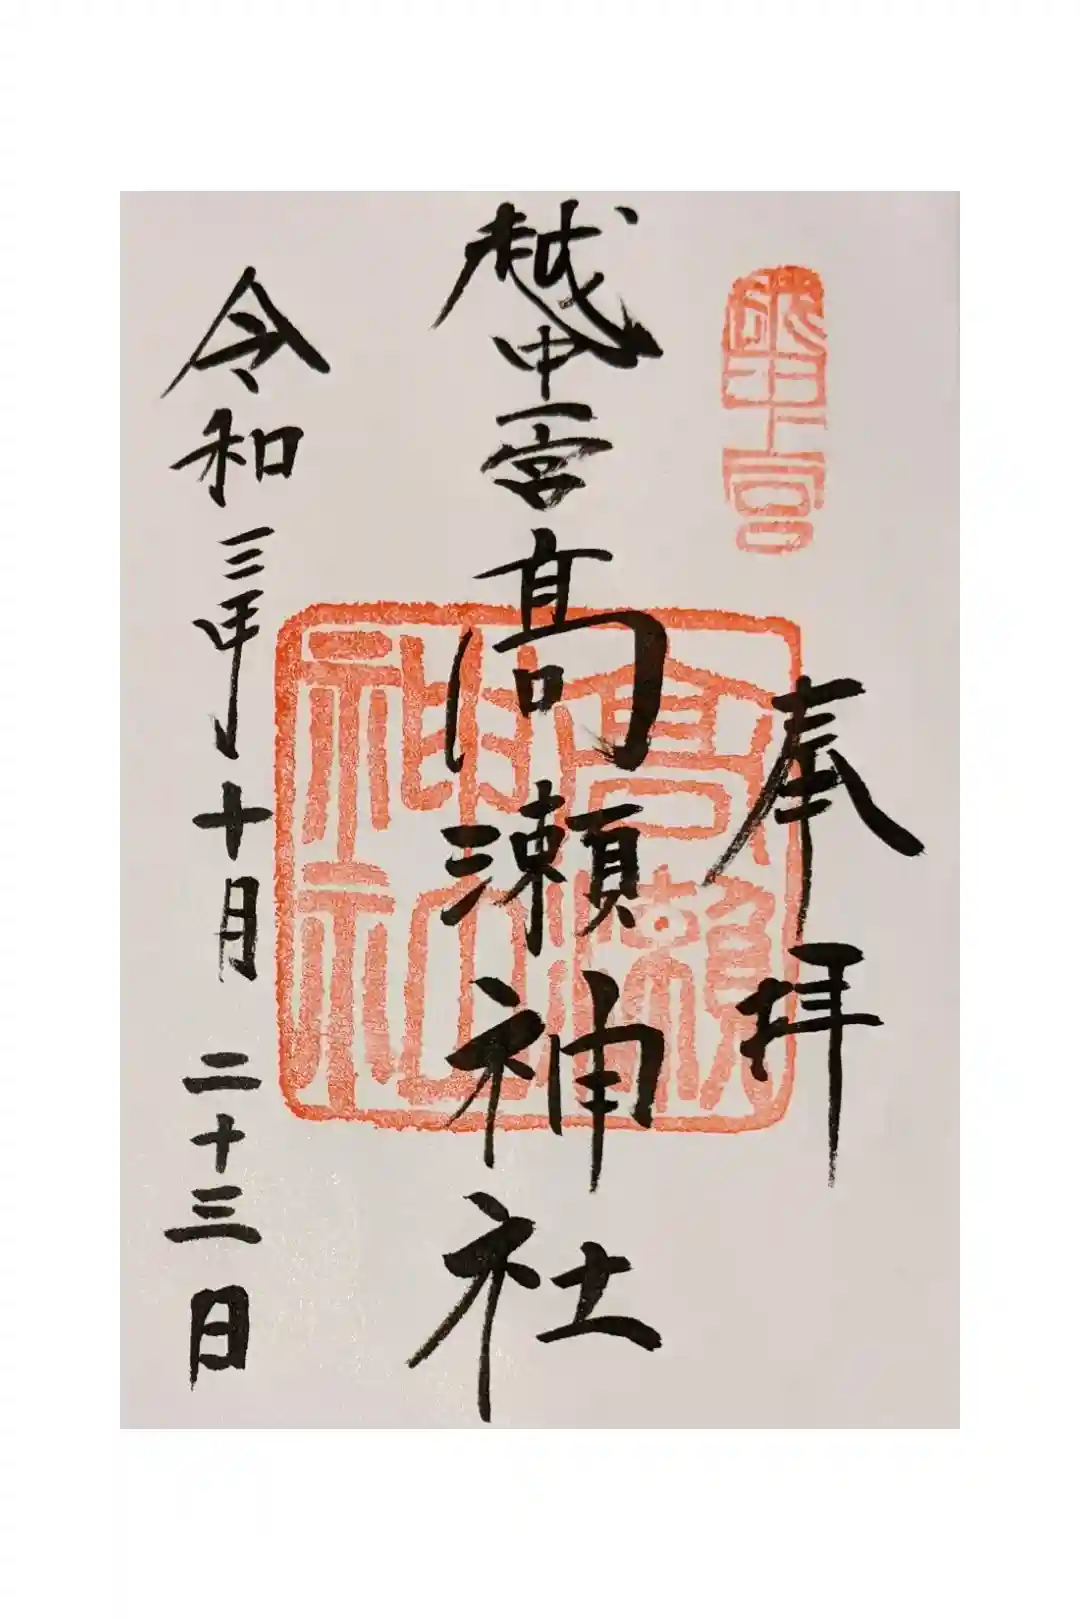 奉拝
越中一宮高瀬神社
令和三年十月二十三日
高瀬
神社